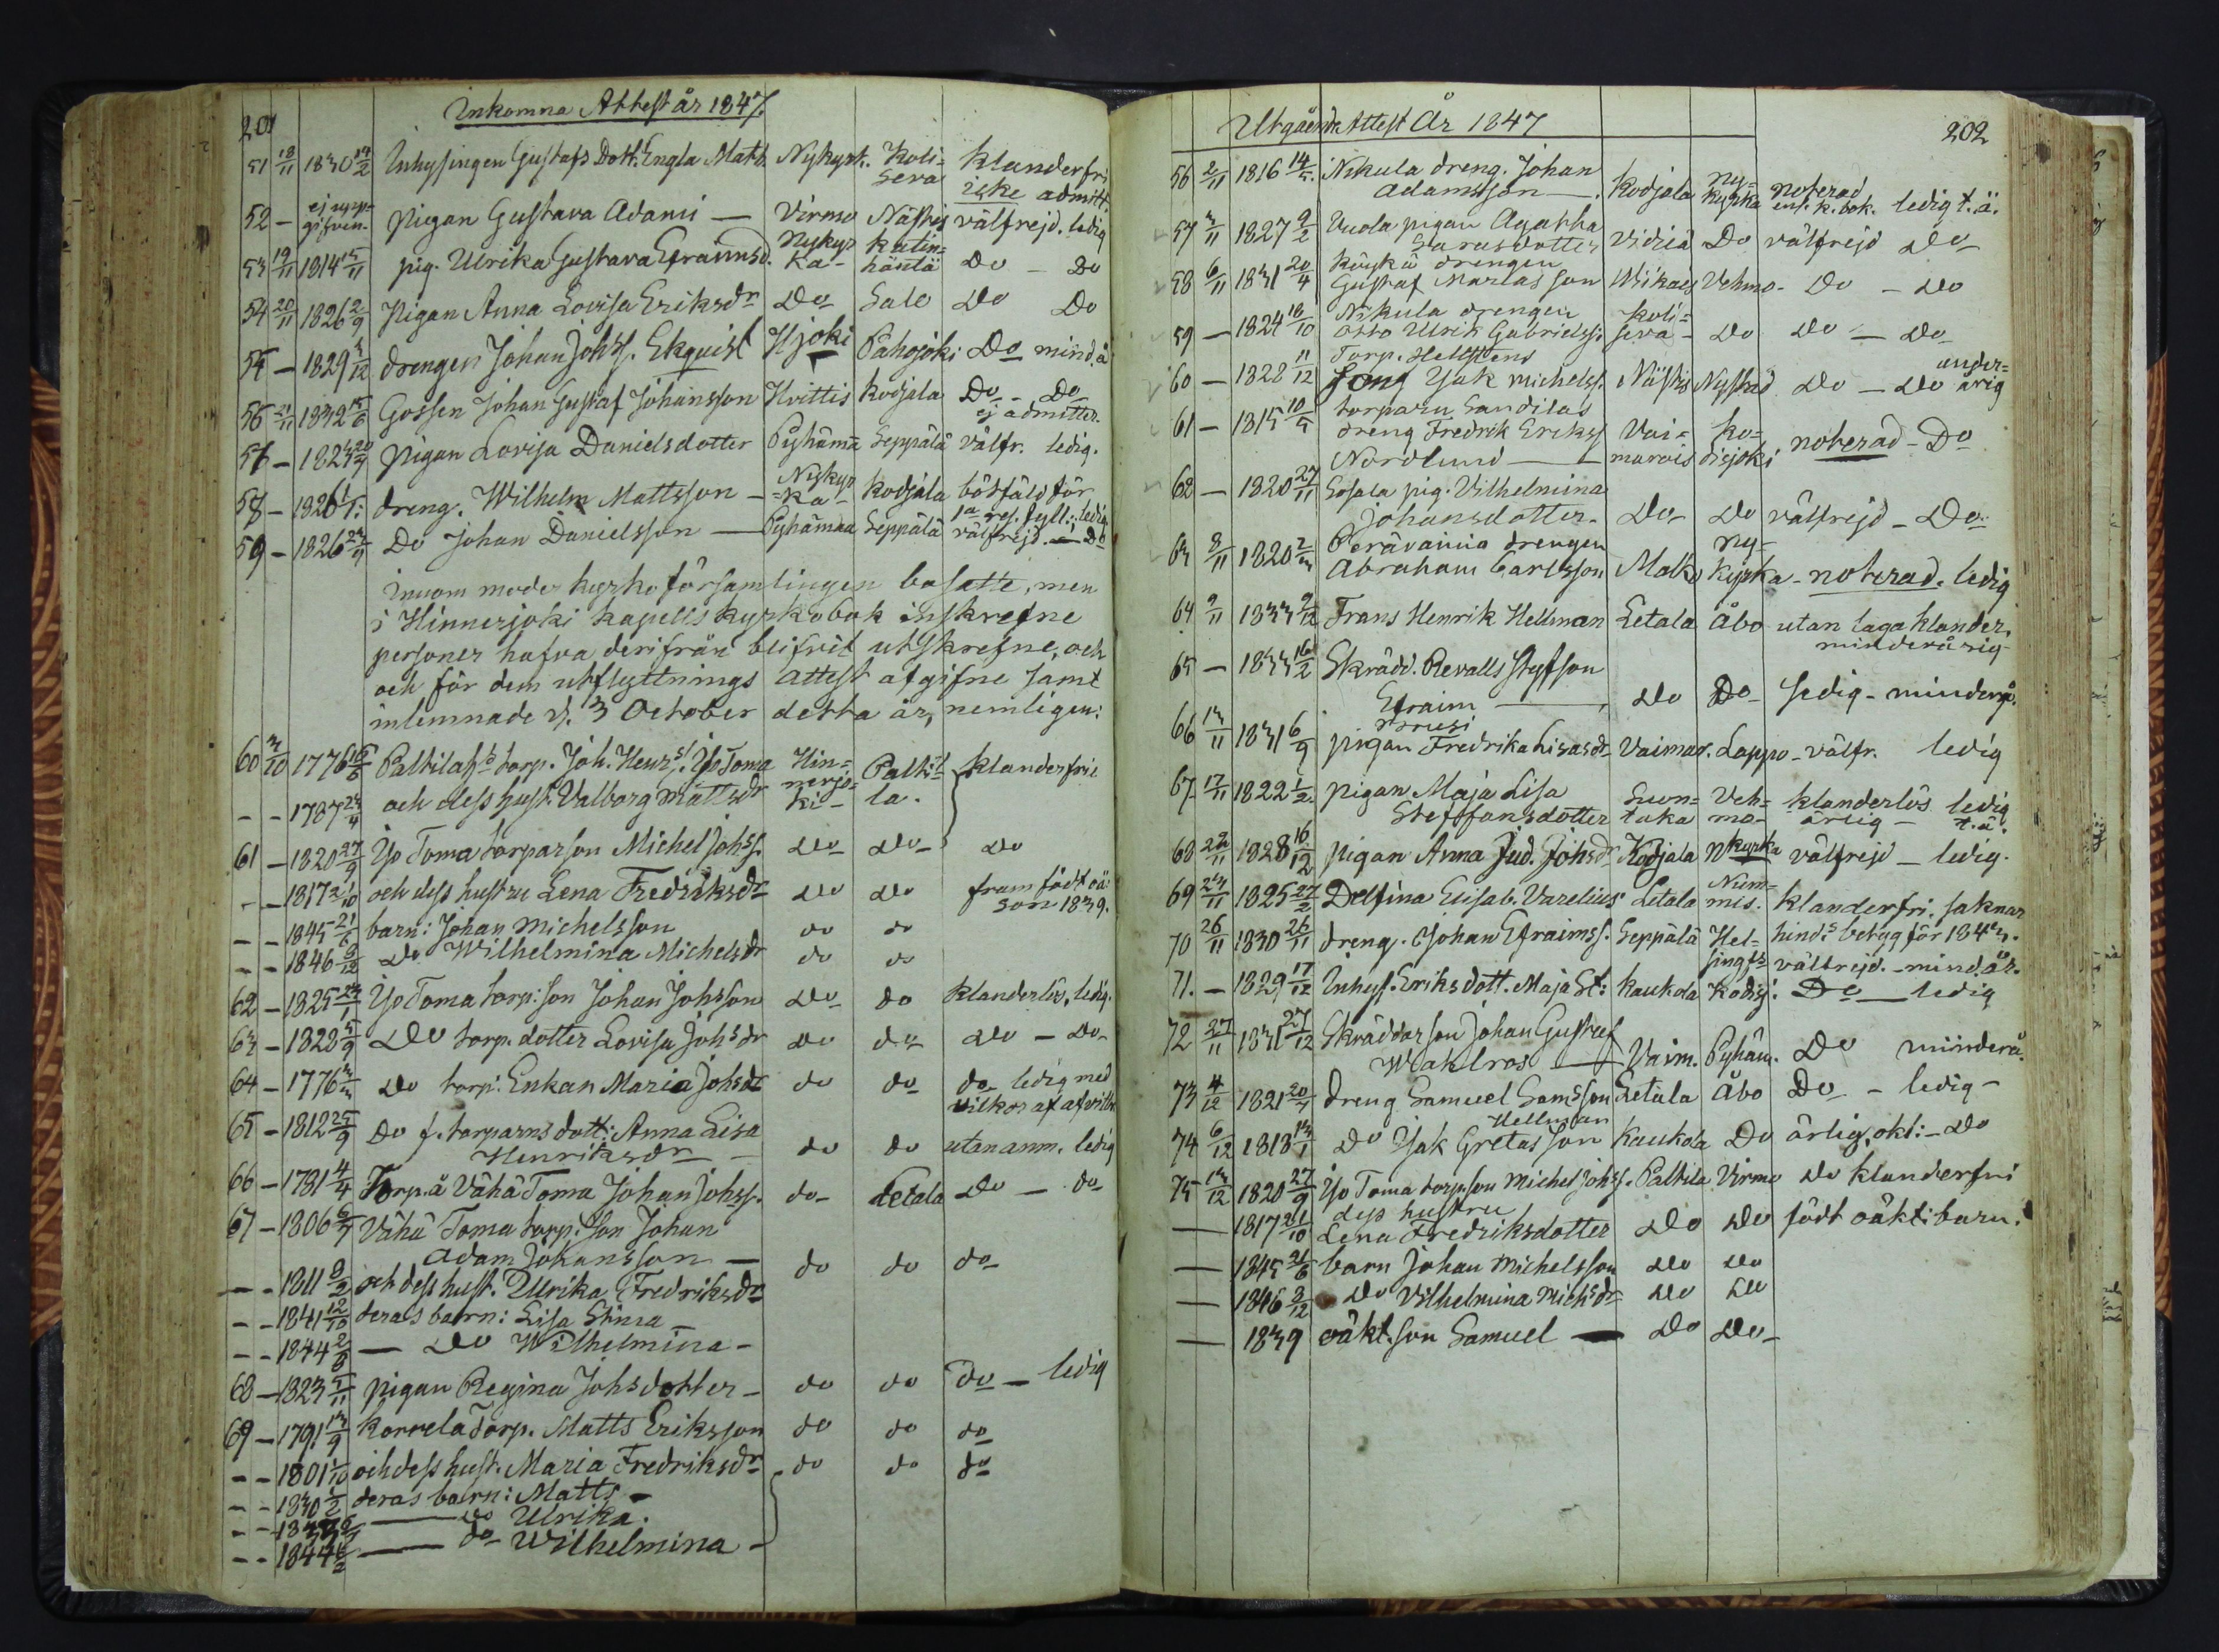 201
Inkomna Attest år 1847.
51 18/11 1830 14/2 Inhysingen Gustafs Dott. Engla Matts. Nykyrk. Koli= klanderfri
sera icke admitt.
52 — ej upp= gifven Pigan Gustava Adami — Virmo Nästis välfrejd. ledig
53 19/11 1814 15/11 pig. Ulrika Gustava Efraimsd. Nykyr ka- katin= häntä Do — Do
54 20/11 1826 2/9 Pigan Anna Lovisa Eriksdr Do Salo Do Do
54 — 1829 /12 drengen Johan Johss. Ekquist Hjoki Pahojoki Do mind.å
56 21/11 1832 15/6 Gossen Johan Gustaf Johansson Hvittis Kodjala Do - Do
ej admitter.
57 — 182 20/9 Pigan Lovisa Danielsdotter Pyhämaa Seppälä välfr. ledig.
58 — 1826 dreng. Wilhelm Mattsson — Nykyr =ka- Kodjala bötfäld för
1a res. fyll.: ledig
59 — 1826 Do Johan Danielsson — Pyhämaa Seppälä välfrejd. — Do
Inuom moder kyrko församlingen bosatte, men
i Hinnerjoki kapells kyrkobok inskrefne
personer hafva derifrån blifvit utskrefne, och
och för dem utflyttnings attest afgifne samt
inlemnade d. 3 October detta år, nemligen:
60 3/10 1776 16/6 Paltilah torp. Joh. Henrs. Yo Toma Hin= Palti= klanderfrie
— — 1787 23/4 och dess hust. Valborg Mattsdr nerjo= ki- la.
61 — 1820 27/9 Yo Toma torparson Michel Johss. Do Do Do
— — 1817 21/10 och dess hustru Lena Fredriksdr Do Do fram födt oä:
son 1839.
— — 1845 21/6 barn: Johan Michelsson do do
— — 1846 8/12 Do Wilhelmina Michelsdr do do
62 — 1825 23/1 Yo Toma torp: son Johan Johsson Do do klanderlös, ledig.
63 — 1828 5/9 Do torp. dotter Lovisa Johsdr Do do Do — Do
64 — 1776 Do torp: Enkan Maria Johsdr do do do ledig med
vilkor af afvittr.
65 — 1812 25/9 Do f. torparns dott: Anna Lisa
Henriksdr — do do utan anm. ledig
66 — 1781 4/4 Torp. å Vähä Toma Johan Johss. do- Letala Do — do
67 — 1806 6/7 Vähä Toma torp. son Johan
Adam Johansson — do do do
— — 1811 8/2 och dess hust. Ulrika Fredriksdr
— — 1841 12/10 deras barn: Lisa Stina
— — 1844 2/8 — Do Wilhelmina -
68 — 1823 5/11 pigan Regina Johsdotter - do do do — ledig
69 — 1791 13/9 Korrela torp. Matts Eriksson do do do
— — 1801 /10 och dess hust. Maria Fredriksdr do do do
— — 1830 1/2 deras barn: Matts —
— — 183 — do Ulrika.
— — 1844 — do Wilhelmina —
Utgående Attest År 1847
202
56 2/11 1816 14/5 Nikula dreng. Johan
Adamsson — . Kodjala ny= kyrka noterad enl. k. bok. ledig t. ä.
57 3/11 1827 9/2 Vuola pigan Agatha
Sarasdotter Vidriä Do välfrejd Do
58 6/11 1831 20/4 Köykä drengen
Gustaf Mariasson Wikais Vehmo - Do — Do
59 — 1824 18/10 Nikula drengen
Otto Ulrik Gabrielss: Koli= sera - Do Do — Do
60 — 1828 11/12 Torp. Hellstens
Jak Michelss. Nästis Nystad Do — Do under= årig
61 — 1815 10/5 torparn Sandilas
dreng Fredrik Erikss
Nordlund — Vai= marois Ko= disjoki noterad - Do
62 — 1820 27/11 Sosala pig. Vilhelmina
Johansdotter. Do Do välfrejd - Do
63 8/11 1820 2/3 Perävainio drengen
Abraham Carlsson Malko ny= kyrka - noterad. ledig
64 9/11 1833 9/12 Frans Henrik Hellman Letala Åbo utan laga klander,
minderårig
65 — 1833 16/2 Skrädd. Revalls styfson
Efraim — Do Do ledig - minderå.
66 13/11 1831 6/9 Prusi
pigan Fredrika Lisasdr Vaimar. Lappo - välfr. ledig
67 17/11 1822 1/2 pigan Maja Lisa
Steffansdotter Suon= taka Veh= mo- klanderlös ledig
ärlig - t. ä.
68 22/11 1828 16/12 pigan Anna Jud. Johsdr Kodjala Nkyrka välfrejd — ledig.
69 23/11 1825 27/2 Delfina Elisab. Varelius Letala Num= mis. klanderfri. saknar
70 26/11 1830 26/11 dreng. Johan Efraimss. Seppälä Hel= singfs hinds betyg för 1843.
välfrejd. - mind. år.
71. — 1829 17/12 Inhys. Eriks dott. Maja St: Kaukola Kodisj. Do — ledig
72 27/11 1831 27/12 Skräddarson Johan Gustaf
Wahlros — Vaim. Pyhäm. Do minderå.
73 4/12 1821 20/7 dreng Samuel Samsson Letala Åbo Do - ledig -
Hellman
74 6/12 1818 13/1 Do Isak Gretasson Kaukola Do ärlig, okl: - Do
75 13/12 1820 27/9 Yo Toma torpson Michel Johss. Paltila Virmo Do klanderfri
— 1817 21/10 dess hustru
Lena Fredriksdotter Do Do födt oäkt: barn.
— 1845 21/6 barn Johan Michelsson Do Do
— 1846 8/12 Do Vilhelmina Michsdr Do Do
— 1839 oäkt. son Samuel — Do Do